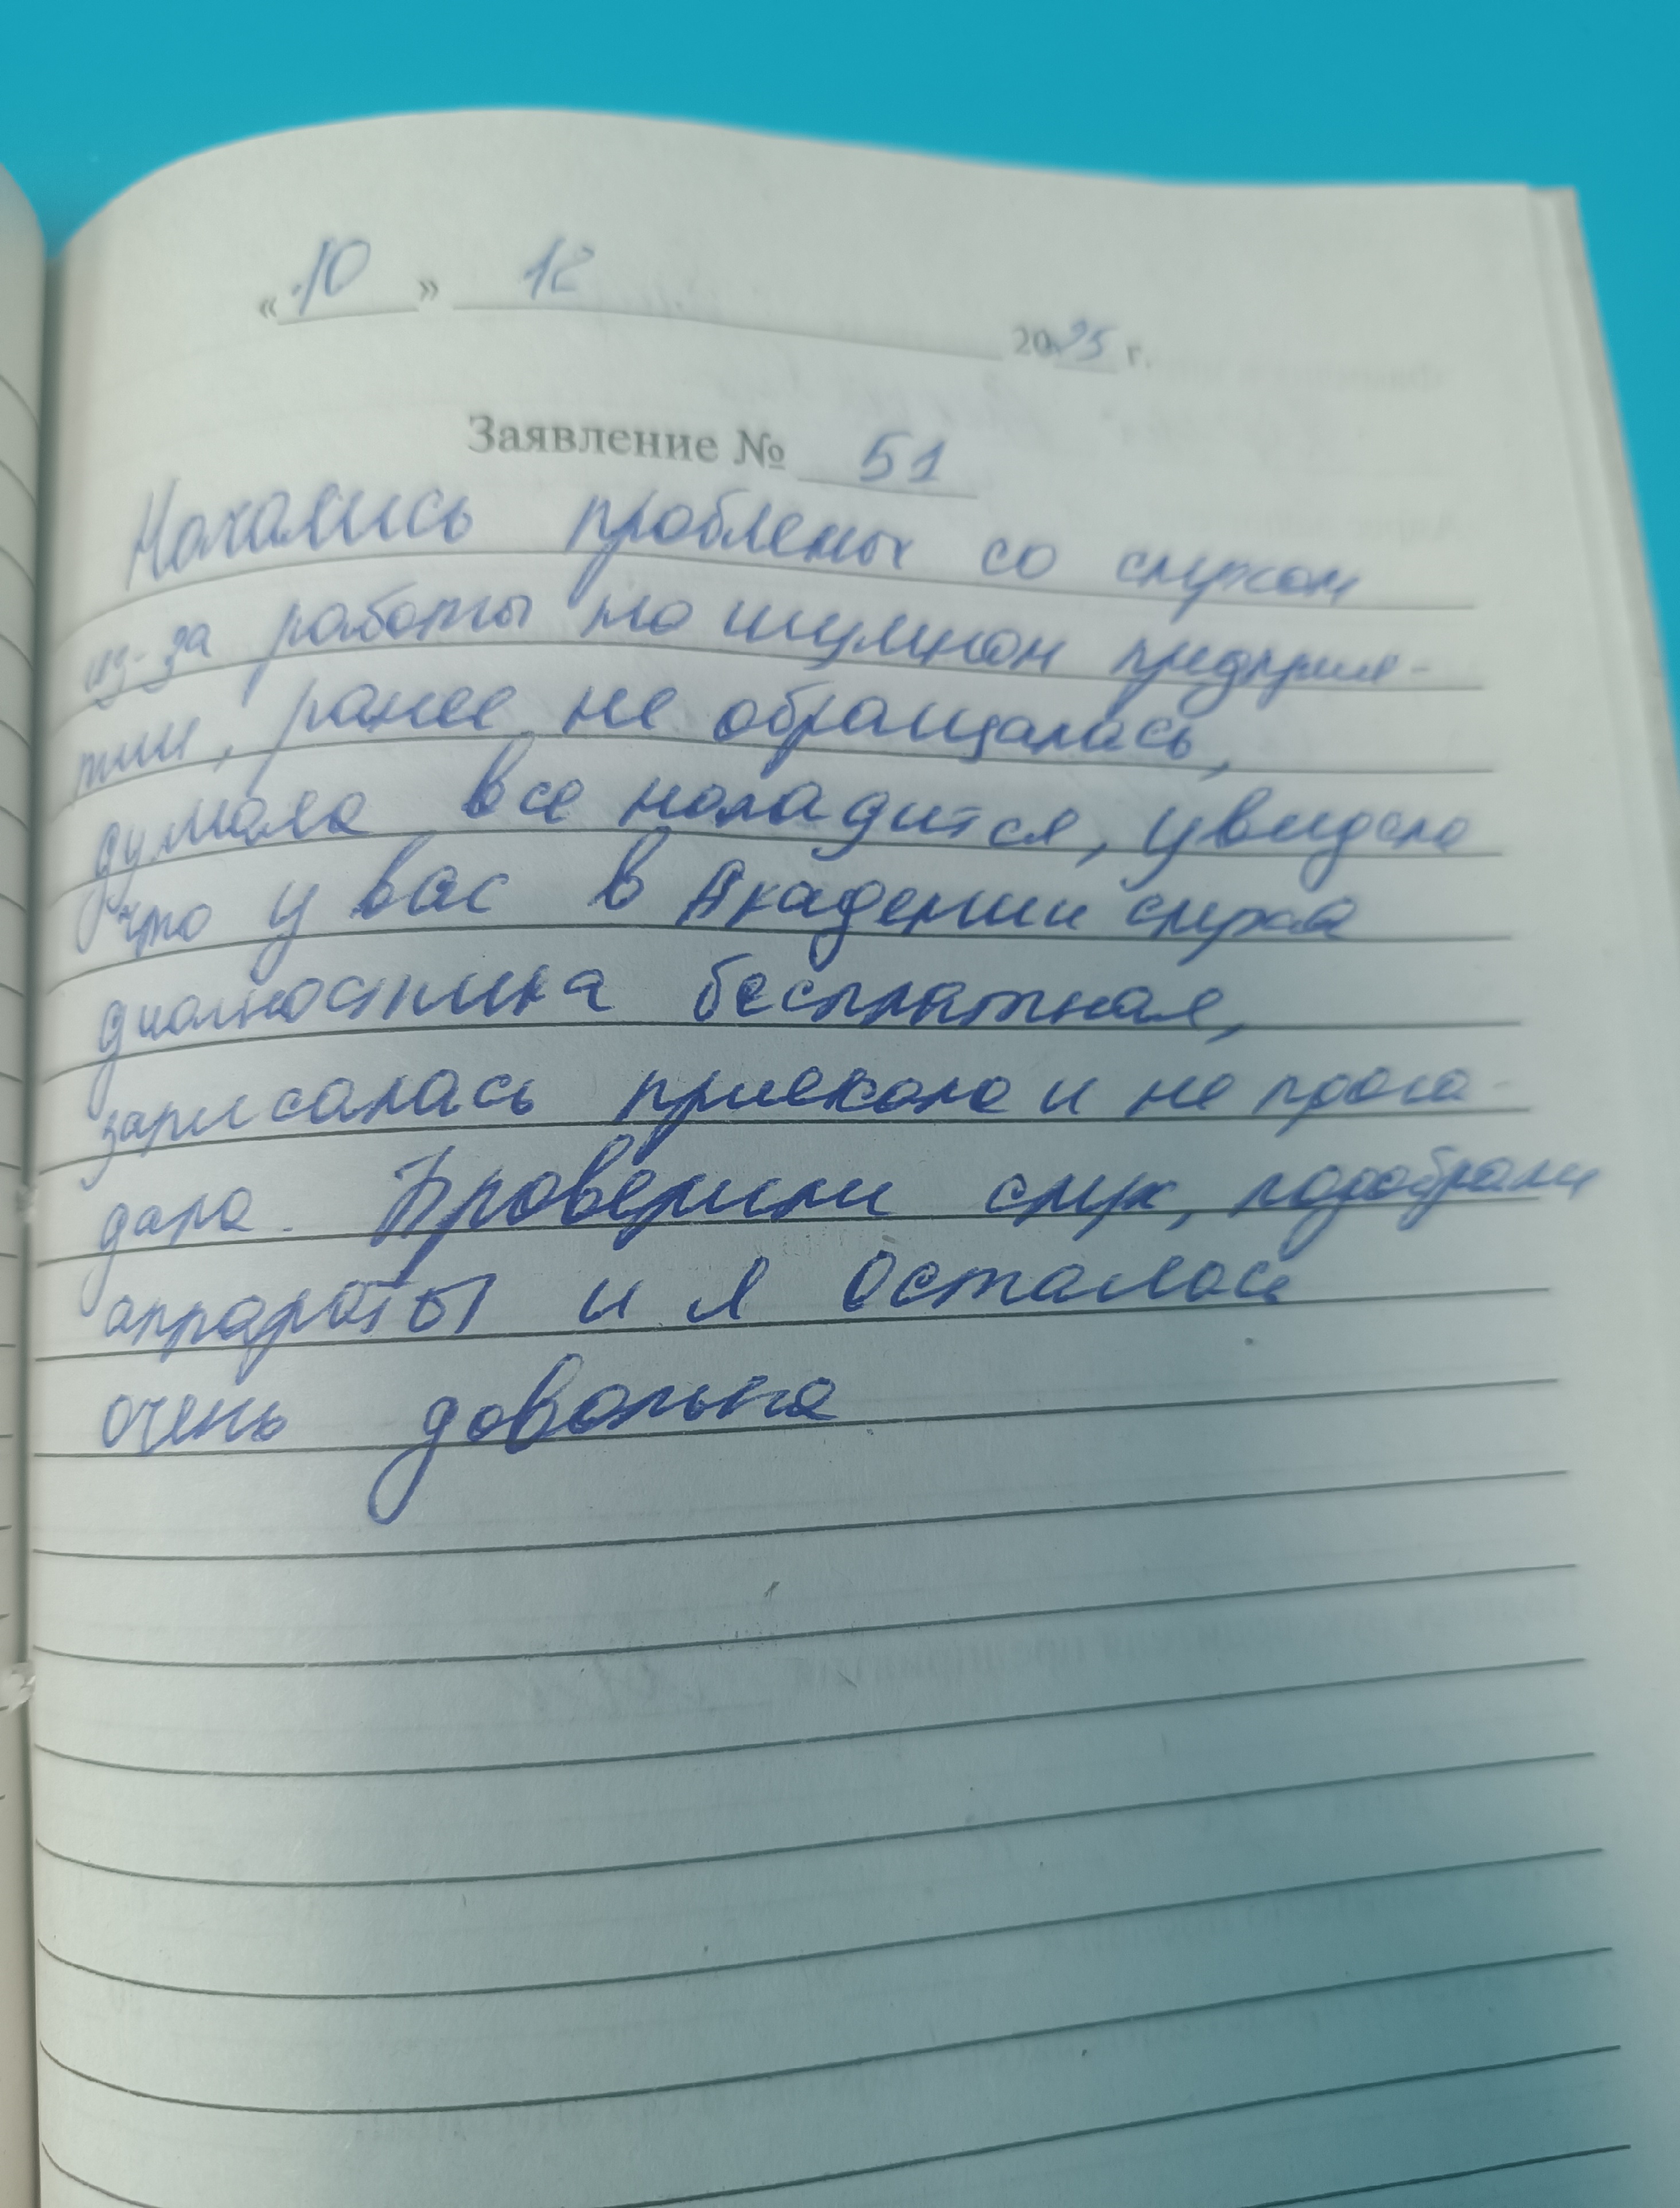 «10» 12 2025 г.
Заявление № 51
Начались проблемы со слухом
из-за работы на шумном предприя-
тии, ранее не обращалась,
думала все наладится, увидела
что у вас в Академии слуха
диагностика бесплатная,
записалась приехала и не прога-
дала. Проверили слух, подобрали
аппараты и я осталась
очень довольна